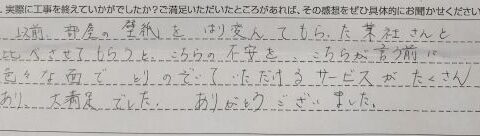 . 実際に工事を終えていかがでしたか?ご満足いただいたところがあれば、その感想をぜひ具体的にお聞かせください
以前、部屋の壁紙を はり変えてもらった業社さんと
比べさせてもらうと、こちらの不安を、こちらが言う前に
色々な面で とりのぞいていただけるサービスがたくさん
あり、大満足でした。ありがとうございました。